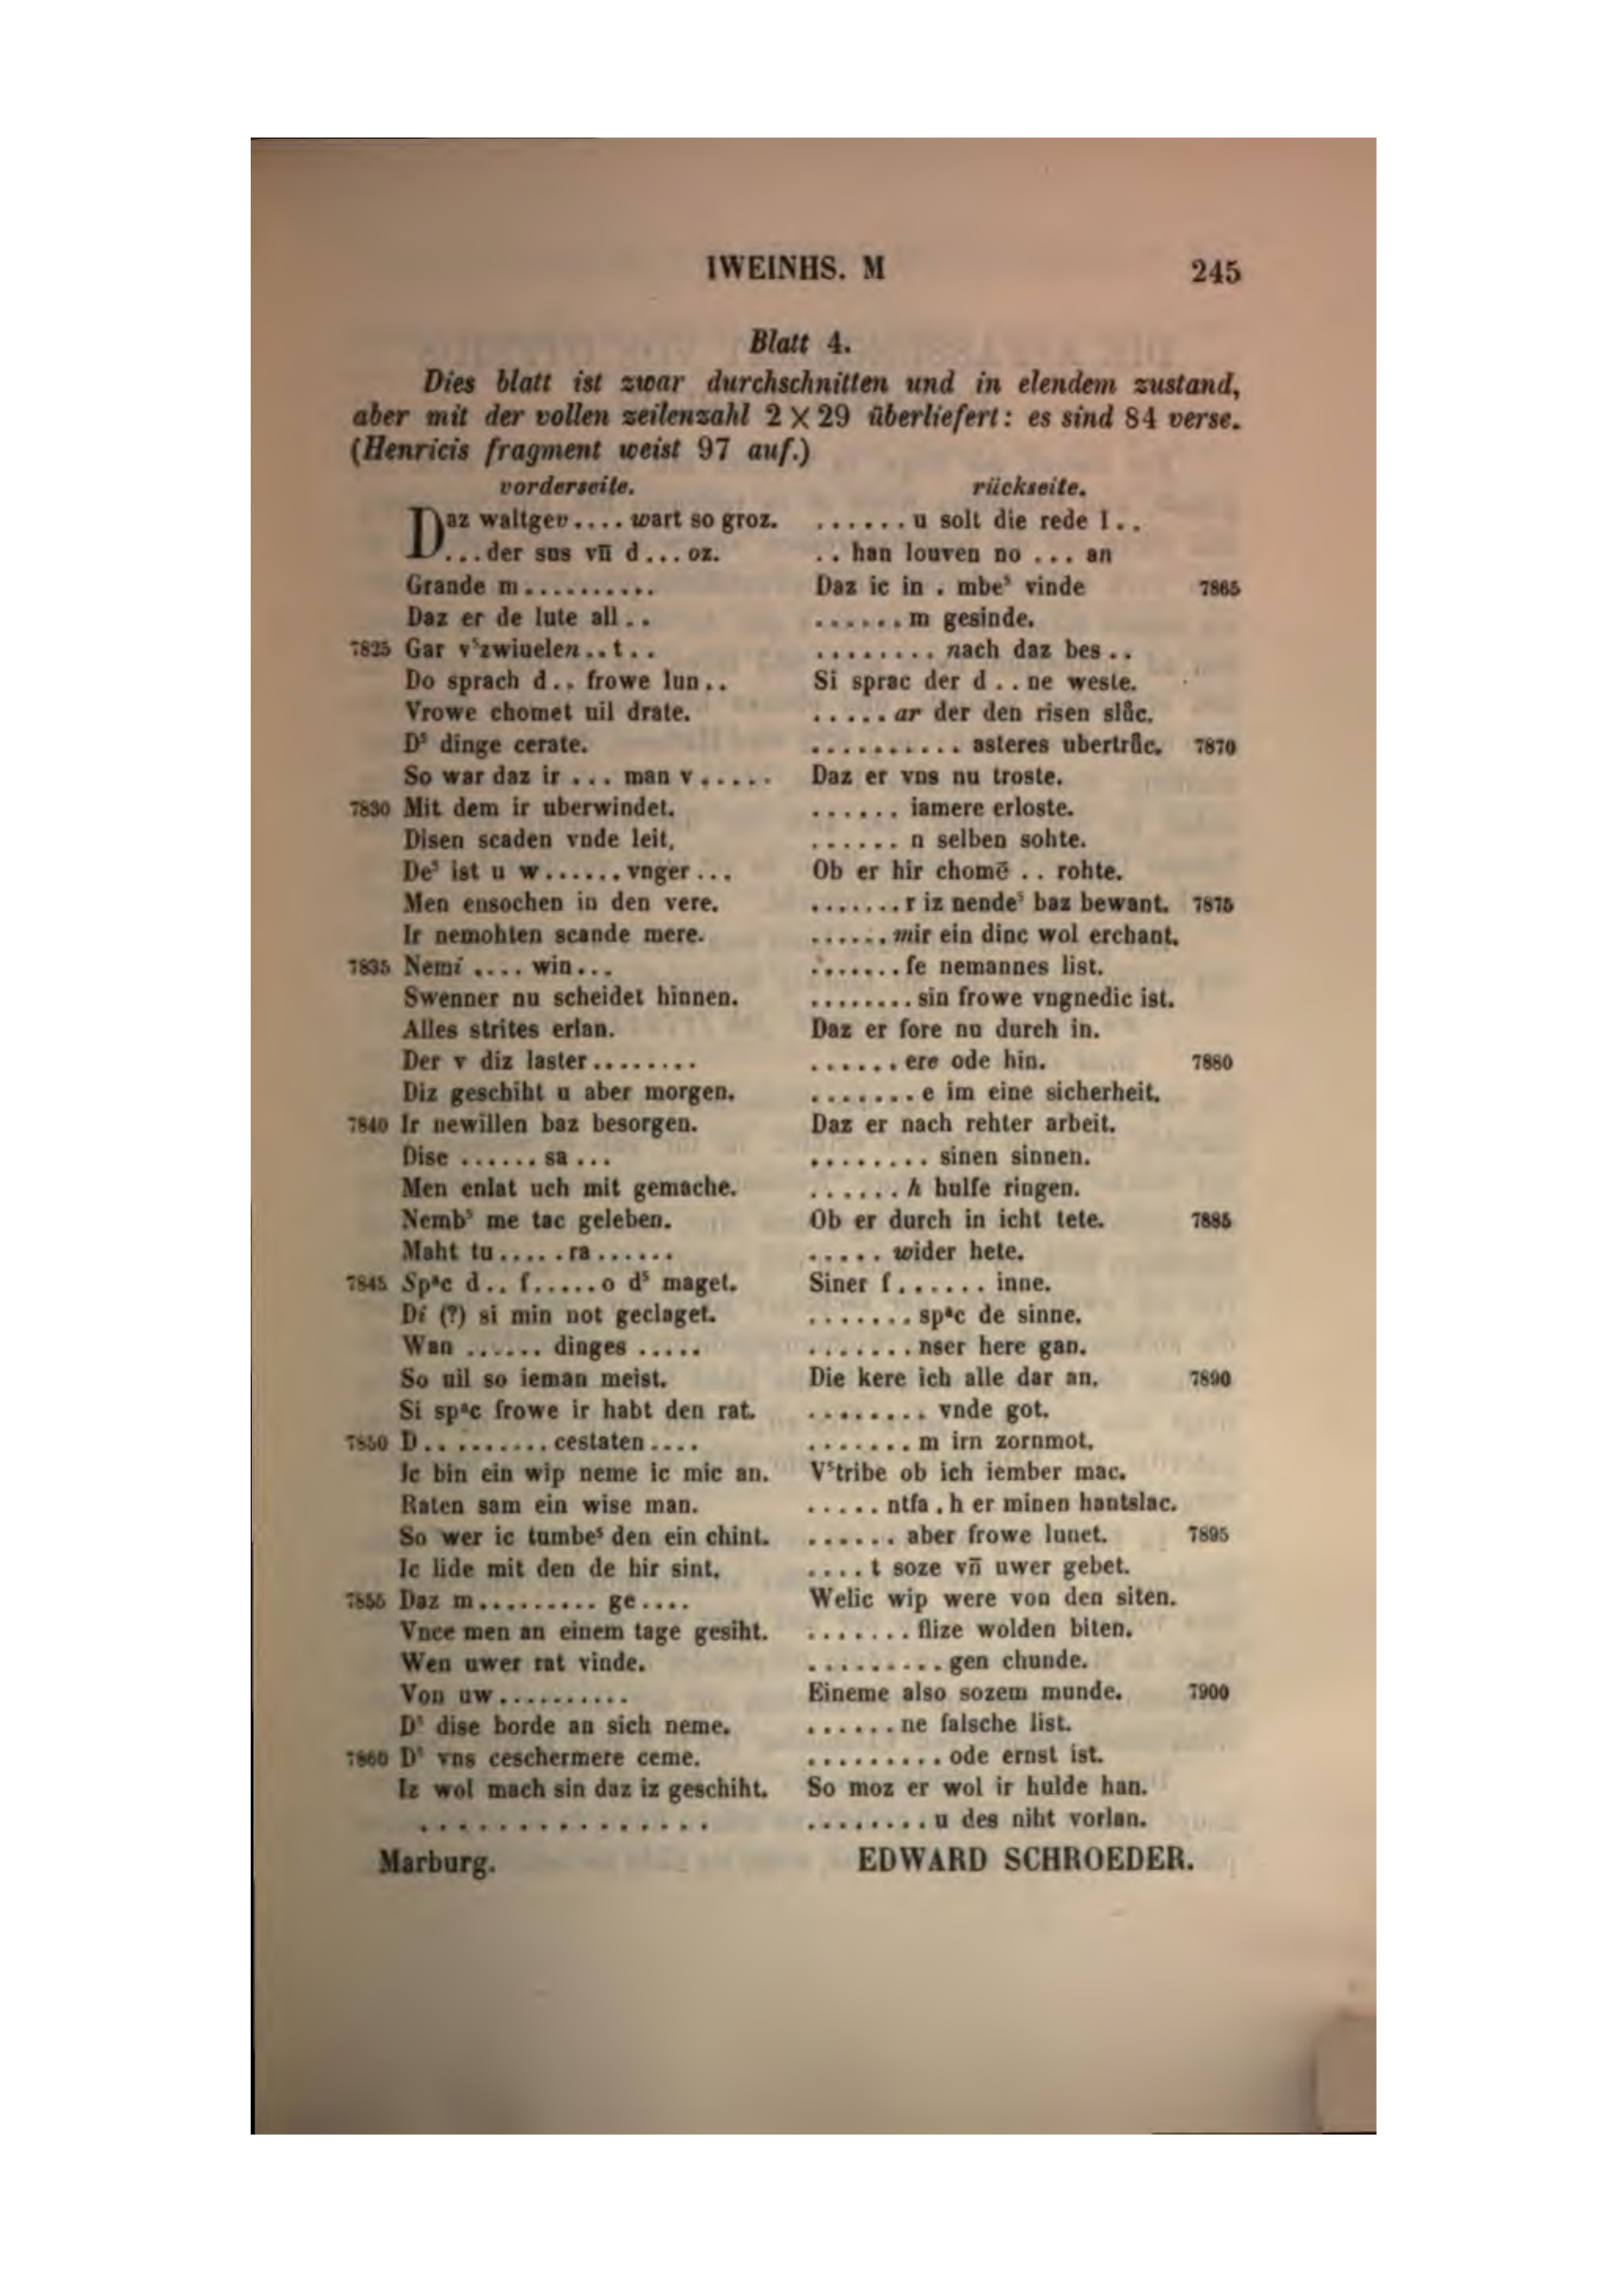 IWEINHS. M 245
Blatt 4.
Dies blatt ist zwar durchschnitten und in elendem zustand,
aber mit der vollen zeilenzahl 2 × 29 überliefert: es sind 84 verse.
(Henricis fragment weist 97 auf.)
vorderseite.
Daz waltgev.... wart so groz.
...der sus vn̄ d...oz.
Grande m..........
Daz er de lute all..
7825 Gar vˢzwiuelen..t..
Do sprach d.. frowe lun..
Vrowe chomet uil drate.
Dˢ dinge cerate.
So war daz ir ... man v.....
7830 Mit dem ir uberwindet.
Disen scaden vnde leit,
Deˢ ist u w......vnger...
Men ensochen in den vere.
Ir nemohten scande mere.
7835 Nemi .... win...
Swenner nu scheidet hinnen.
Alles strites erlan.
Der v diz laster........
Diz geschiht u aber morgen.
7840 Ir newillen baz besorgen.
Dise ...... sa ...
Men enlat uch mit gemache.
Nembˢ me tac geleben.
Maht tu.....ra......
7845 Spᵃc d.. f......o dˢ maget.
Di (?) si min not geclaget.
Wan ...... dinges .....
So uil so ieman meist.
Si spᵃc frowe ir habt den rat.
7850 D.. ........ cestaten ....
Jc bin ein wip neme ic mic an.
Raten sam ein wise man.
So wer ic tumbeˢ den ein chint.
Ic lide mit den de hir sint.
7855 Daz m......... ge....
Vnce men an einem tage gesiht.
Wen uwer rat vinde.
Von uw..........
Dˢ dise borde an sich neme.
7860 Dˢ vns ceschermere ceme.
Iz wol mach sin daz iz geschiht.
...............
rückseite.
......u solt die rede l..
.. han louven no ... an
Daz ic in . mbeˢ vinde 7865
......m gesinde.
........ nach daz bes..
Si sprac der d..ne weste.
.....ar der den risen slůc.
.......... asteres ubertrůc. 7870
Daz er vns nu troste.
...... iamere erloste.
...... n selben sohte.
Ob er hir chomē .. rohte.
.......r iz nendeˢ baz bewant. 7875
......mir ein dinc wol erchant.
.......fe nemannes list.
........ sin frowe vngnedic ist.
Daz er fore nu durch in.
......ere ode hin. 7880
.......e im eine sicherheit.
Daz er nach rehter arbeit.
........ sinen sinnen.
......h hulfe ringen.
Ob er durch in icht tete. 7885
..... wider hete.
Siner f...... inne.
.......spᵃc de sinne.
.......nser here gan.
Die kere ich alle dar an. 7890
........ vnde got.
.......m irn zornmot.
Vˢtribe ob ich iember mac.
.....ntfa.h er minen hantslac.
...... aber frowe lunet. 7895
....t soze vn̄ uwer gebet.
Welic wip were von den siten.
.......flize wolden biten.
.........gen chunde.
Eineme also sozem munde. 7900
......ne falsche list.
.........ode ernst ist.
So moz er wol ir hulde han.
........u des niht vorlan.
Marburg. EDWARD SCHROEDER.